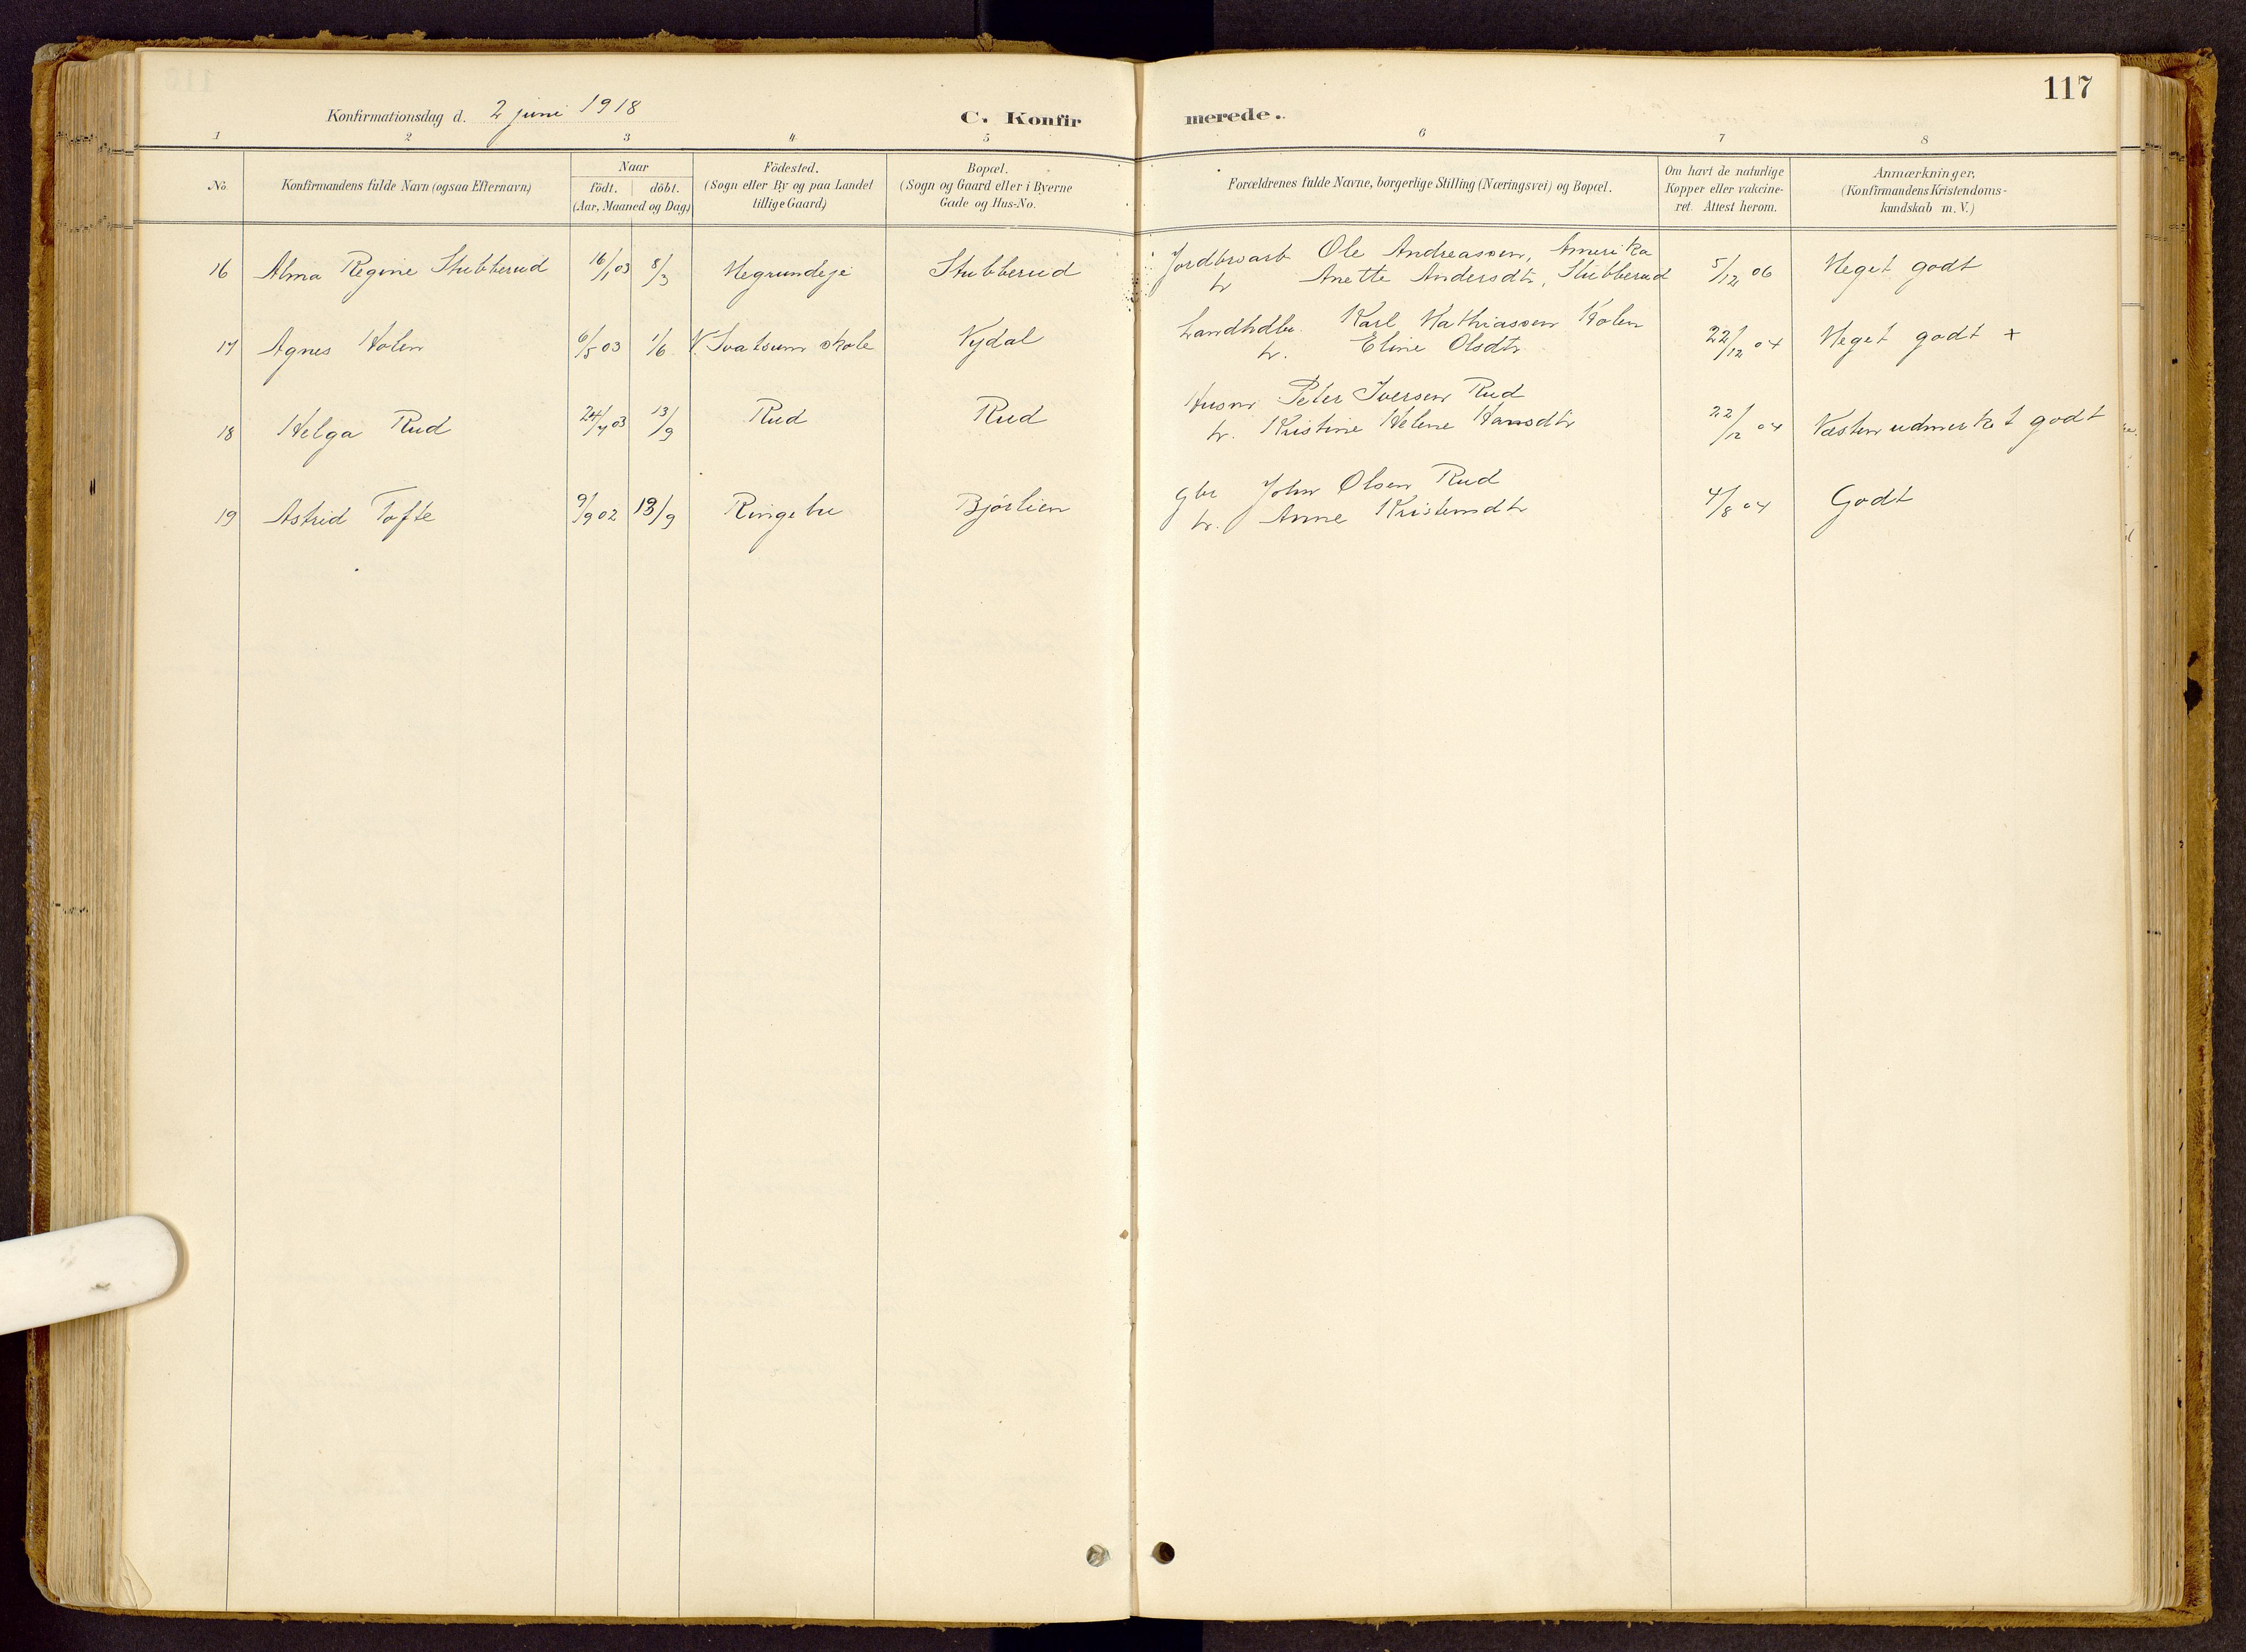 117
Konfirmationsdag d. 2 juni 1918
C. Konfirmerede.
1 2 3 4 5 6 7 8
No.
Konfirmandens fulde Navn (ogsaa Efternavn)
Naar
födt. döbt.
(Aar, Maaned og Dag)
Födested.
(Sogn eller By og paa Landet
tillige Gaard)
Bopæl.
(Sogn og Gaard eller i Byerne
Gade og Hus-No.
Forældrenes fulde Navne, borgerlige Stilling (Næringsvei) og Bopæl.
Om havt de naturlige
Kopper eller vakcine-
ret. Attest herom.
Anmærkninger,
(Konfirmandens Kristendoms-
kundskab m. V.)
16 Alma Regine Stubberud 16/1 03 8/3 Megrundeje Stubberud Jordbrarb Ole Andreassen, Amerika 5/12 06 Meget godt
h Anette Andersdtr, Stubberud
17 Agnes Holen 6/5 03 1/6 V. Svatsum skole Nydal Landhdlr. Karl Mathiassen Holen 22/12 04 Meget godt +
h. Eline Olsdtr
18 Helga Rud 24/7 03 13/9 Rud Rud Husm Peter Iversen Rud 22/12 04 Næsten udmerket godt
h. Kristine Helene Hansdtr
19 Astrid Tofte 9/9 02 13/9 Ringebu Bjørlien Gbr John Olsen Rud 4/8 04 Godt
h. Anne Kristensdtr